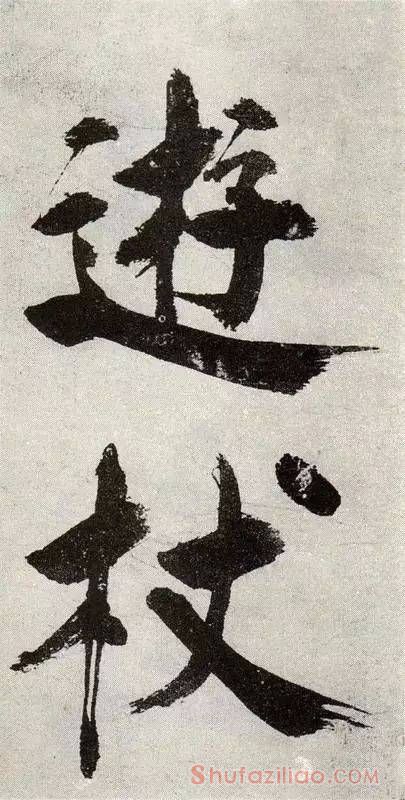 遊
杖
Shufaziliao.com